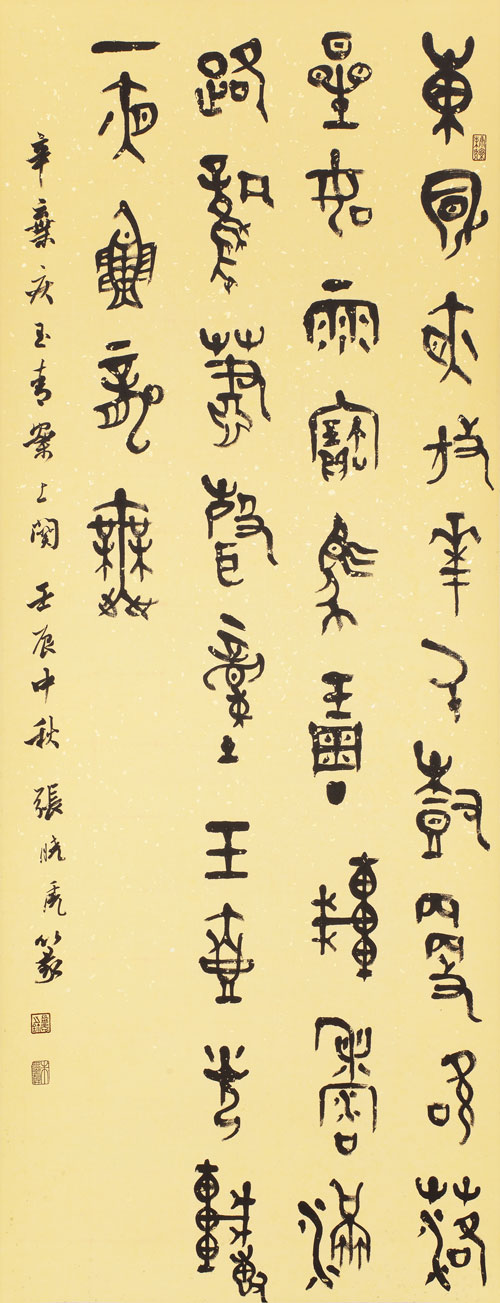 東風夜放華千樹更吹落
星如雨寶馬琱車香滿
路鳳簫聲動玉壺光轉
一夜魚龍舞
辛棄疾玉青案上闋 壬辰中秋 張曉 篆